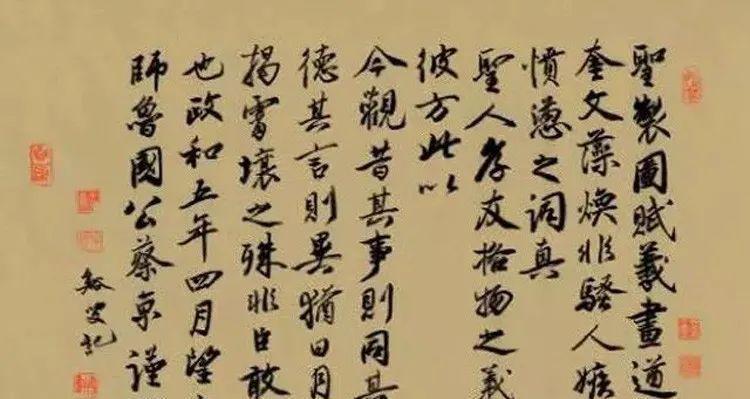 聖製圖賦義畫道
奎文藻煥非騷人嫉
憤懣之詞真
聖人孝友格物之義
彼方此以
今觀昔其事則同其
德其言則異猶日月
揭霄壤之殊非臣敢
也政和五年四月望
師魯國公蔡京謹
記